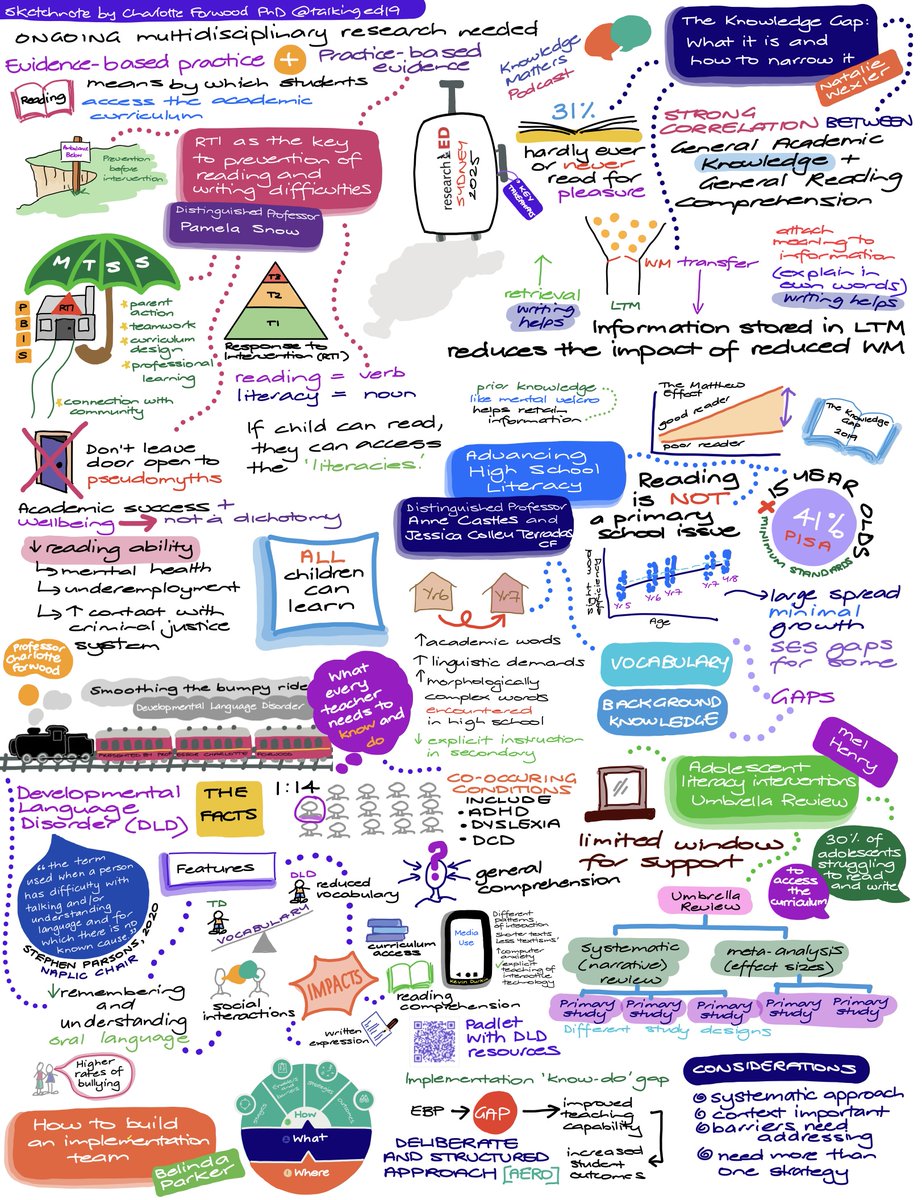 Sketchnote by Charlotte Forwood PhD @talkinged19
ONGOING multidisciplinary research needed
Evidence-based practice + Practice-based evidence
Reading
means by which students
access the academic
curriculum
Ambulance
Below
Prevention
before
intervention
RTI as the key
to prevention of
reading and
writing difficulties
Distinguished Professor
Pamela Snow
MTSS
PBIS
RTI
parent
action
teamwork
curriculum
design
professional
learning
connection with
community
T3
T2
T1
Response to
Intervention (RTI)
reading = verb
literacy = noun
If child can read,
they can access
the 'literacies.'
Don't leave
door open to
pseudomyths
Academic success +
wellbeing → not a dichotomy
↓ reading ability
mental health
underemployment
↑ contact with
criminal justice
system
ALL
children
can
learn
research ED
SYDNEY
2025
KEY
TAKEAWAYS
Knowledge
Matters
Podcast
31%
hardly ever
or never
read for
pleasure
The Knowledge Gap:
What it is and
how to narrow it
Natalie
Wexler
STRONG
CORRELATION BETWEEN
General Academic
Knowledge +
General Reading
Comprehension
retrieval
writing
helps
LTM
WM transfer
attach
meaning to
information
(explain in
own words)
writing helps
Information stored in LTM
reduces the impact of reduced WM
prior knowledge
like mental velcro
helps retain
information
The Matthew
Effect
good reader
poor reader
The Knowledge
Gap
2019
Advancing
High School
Literacy
Distinguished Professor
Anne Castles and
Jessica Colleu Terradas
CF
Reading
is NOT
a primary
school issue
15 YEAR OLDS
41%
PISA
x MINIMUM STANDARDS
Yr6
Yr7
↑ academic words
↑ linguistic demands
↑ morphologically
complex words
encountered
in high school
↓ explicit instruction
in secondary
Sight word
Yr5
Yr6
Yr7
Yr7
Yr8
Age
large spread
minimal
growth
SES gaps
for some
VOCABULARY
BACKGROUND
KNOWLEDGE
GAPS
Professor
Charlotte
Forwood
Smoothing the bumpy ride
Developmental Language Disorder
PRESENTED BY PROFESSOR CHARLOTTE FORWOOD
What
every
teacher
needs to
know and
do
Developmental
Language
Disorder (DLD)
THE
FACTS
1:14
CO-OCCURING
CONDITIONS
INCLUDE
• ADHD
• DYSLEXIA
• DCD
"the term
used when a person
has difficulty with
talking and/or
understanding
language and for
which there is no
known cause"
STEPHEN PARSONS, 2020
NAPLIC CHAIR
↓ remembering
and
understanding
oral language
Higher
rates of
bullying
Features
TD
DLD
VOCABULARY
reduced vocabulary
social
interactions
IMPACTS
?
general
comprehension
curriculum
access
reading
comprehension
written
expression
Media
Use
Kevin Durkin
Different
patterns of
interaction
Shorter texts
Less textisms'
↑ computer
anxiety
explicit
teaching of
interactive
technology
Padlet
with DLD
resources
Mel
Henry
Adolescent
literacy interventions
Umbrella Review
limited window
for support
30% of
adolescents
struggling
to read
and write
to
access the
curriculum
Umbrella
Review
systematic
(narrative)
review
meta-analysis
(effect sizes)
Primary
study
Primary
study
Primary
study
Primary
study
Primary
study
Different study designs
How to build
an implementation
team
Belinda
Parker
Enablers
and
barriers
Strategies
Outcomes
How
What
Where
Implementation 'know-do' gap
EBP → GAP → improved
teaching
capability
increased
student
outcomes
DELIBERATE
AND STRUCTURED
APPROACH [AERO]
CONSIDERATIONS
systematic approach
context important
barriers need
addressing
need more than
one strategy